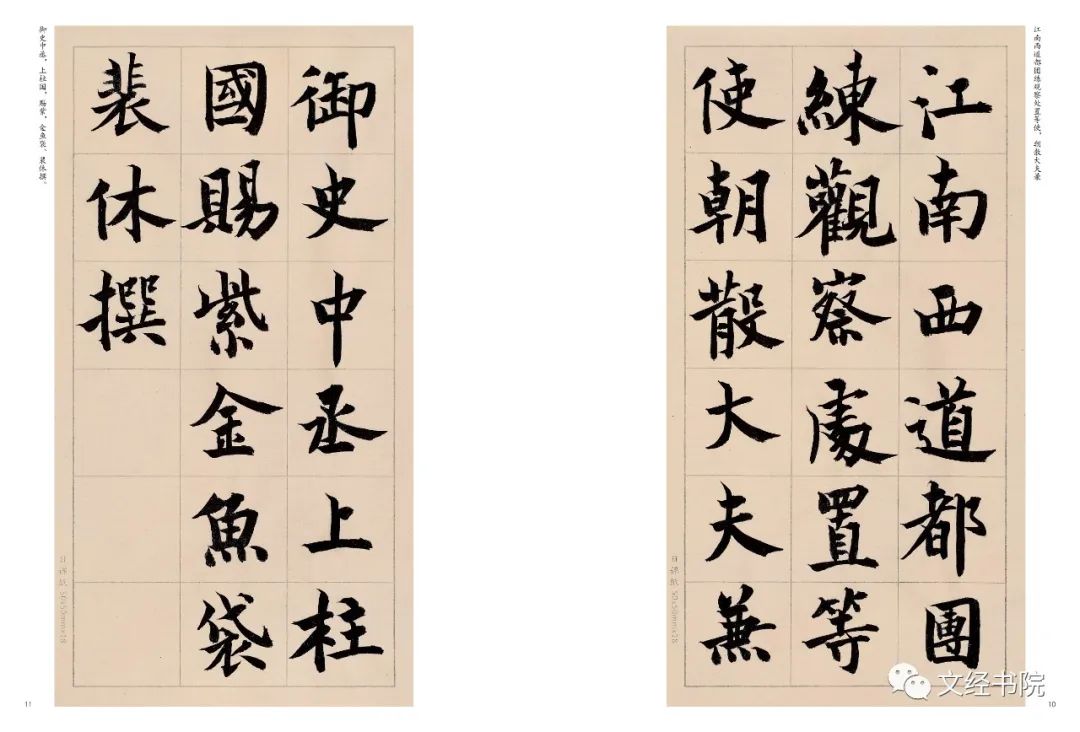 江南西道都团练观察处置等使，朝散大夫兼
江南西道都團
練觀察處置等
使朝散大夫兼
日课纸 50x50mmx28
10
御史中丞，上柱国，赐紫，金鱼袋，裴休撰。
御史中丞上柱
國賜紫金魚袋
裴休撰
日课纸 50x50mmx28
11
文经书院